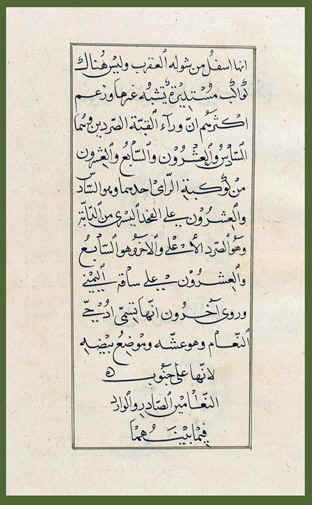 انها اسفل من شوله العقرب وليس هناك
كواكب مستديرة تشبه غيرها وزعم
اكثرهم ان ورآء القبّة الصّردين وهما
السّادس والعشرون والسّابع والعشرون
من كوكبة الرّامى احدهما وهو السّادس
والعشرون على الفخذ اليسرى من الدّابّة
وهو الصّرد الاسفل والاخر وهو السّابع
والعشرون على ساقه اليمنى
وروى آخرون انّها تسمّى ادحىّ
النّعام وهو عشّه وموضع بيضه
لانّها على جنوب
النّعامين الصّادر والوارد
فيما بينهما